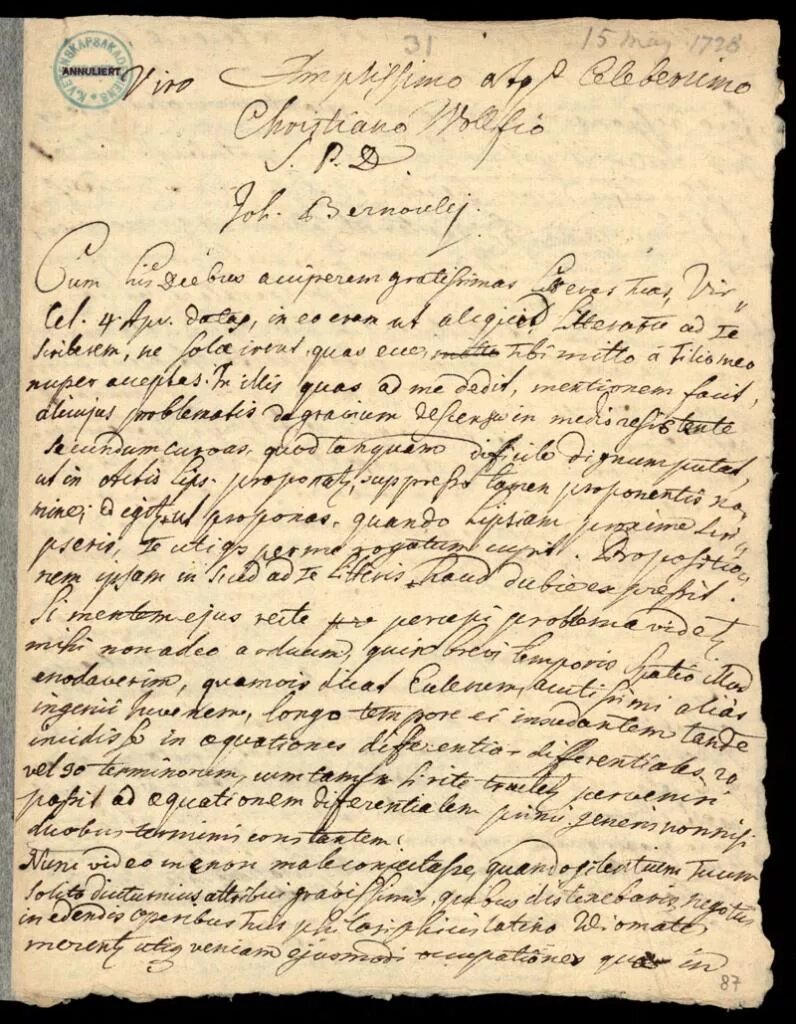 31
15 May 1728
K. VETENSKAPSAKADEMIENS
ANNULLIERT
Viro Amplissimo atqȝ Celeberrimo
Christiano Wolfio
S. P. D
Joh. Bernoulli.
Cum his diebus acciperem gratissimas Litteras tuas, Vir
Cel. 4. Apr. datas, in eo eram ut aliquid Litterarum ad Te
scriberem, ne solae irent, quas ecce tibi mitto à Filio meo
nuper acceptas. In illis quas ad me dedit, mentionem facit,
alicujus problematis de gravium descensu in medio resistente
secundum curvas, quod tanquam difficile dignum putat,
ut in Actis Lips. proponatur, suppresso tamen proponentis no-
mine; id igitur ut proponas, quando Lipsiam proxime scri-
pseris, Te utiqȝ per me rogatum cupit. Propositio-
nem ipsam in suis ad Te litteris haud dubie expressit.
Si mentem ejus recte percepi problema videtur
mihi non adeo arduum, quin brevi temporis spatio illud
enodaverim, quamvis dicat Eulerum, acutissimi aliàs
ingenii Juvenem, longo tempore ei insudantem tandem
incidisse in æquationes differentio-differentiales 20
vel 30 terminorum, cum tamen si rite tractetur perveniri
possit ad æquationem differentialem primi generis nonnisi
duobus terminis constantem.
Nunc video me non male conjectasse, quando silentium Tuum
solito diuturnius attribui gravissimis, quibus distinebaris negotiis
in edendis operibus Tuis philosophicis latino Idiomate,
merentur utiqȝ veniam ejusmodi occupationes quae in
87